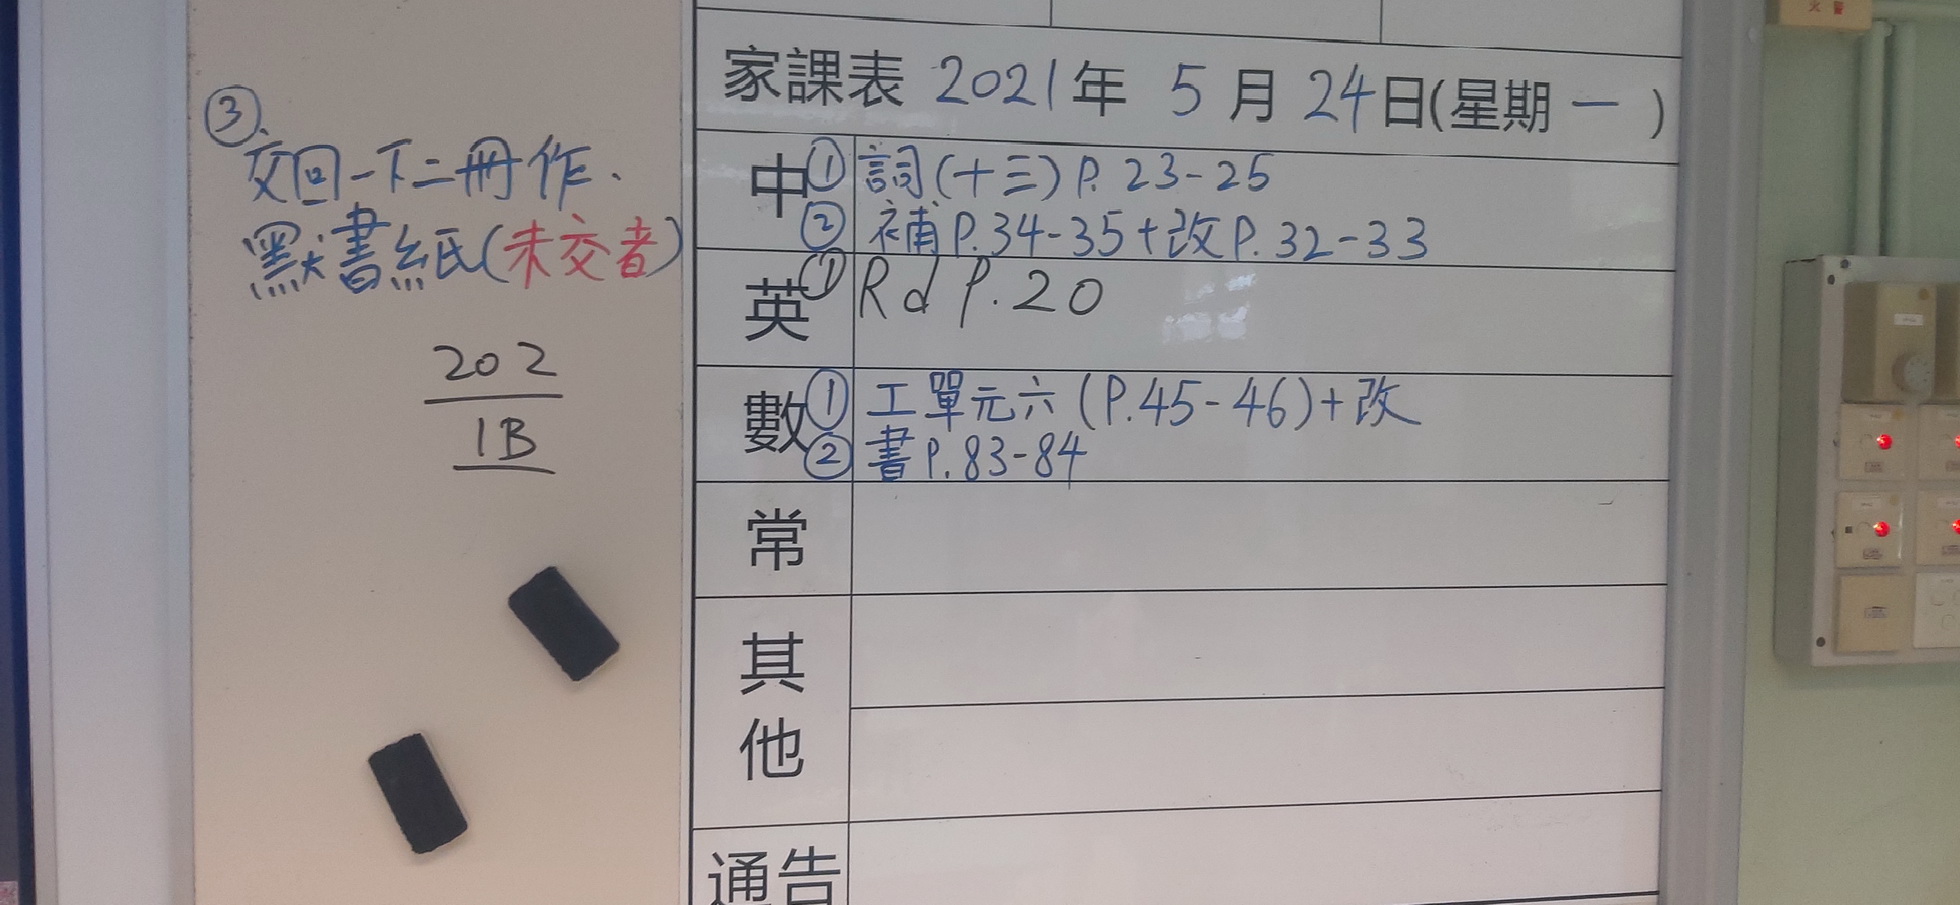 ③
交回一下二冊作.
默書紙(未交者)
202
1B
家課表 2021年 5月 24日(星期一)
中 ① 詞(十三) P. 23-25
② 補P.34-35+改P.32-33
英 ① Rd P.20
數 ① 工單元六(P.45-46)+改
② 書P.83-84
常
其他
通告
火警